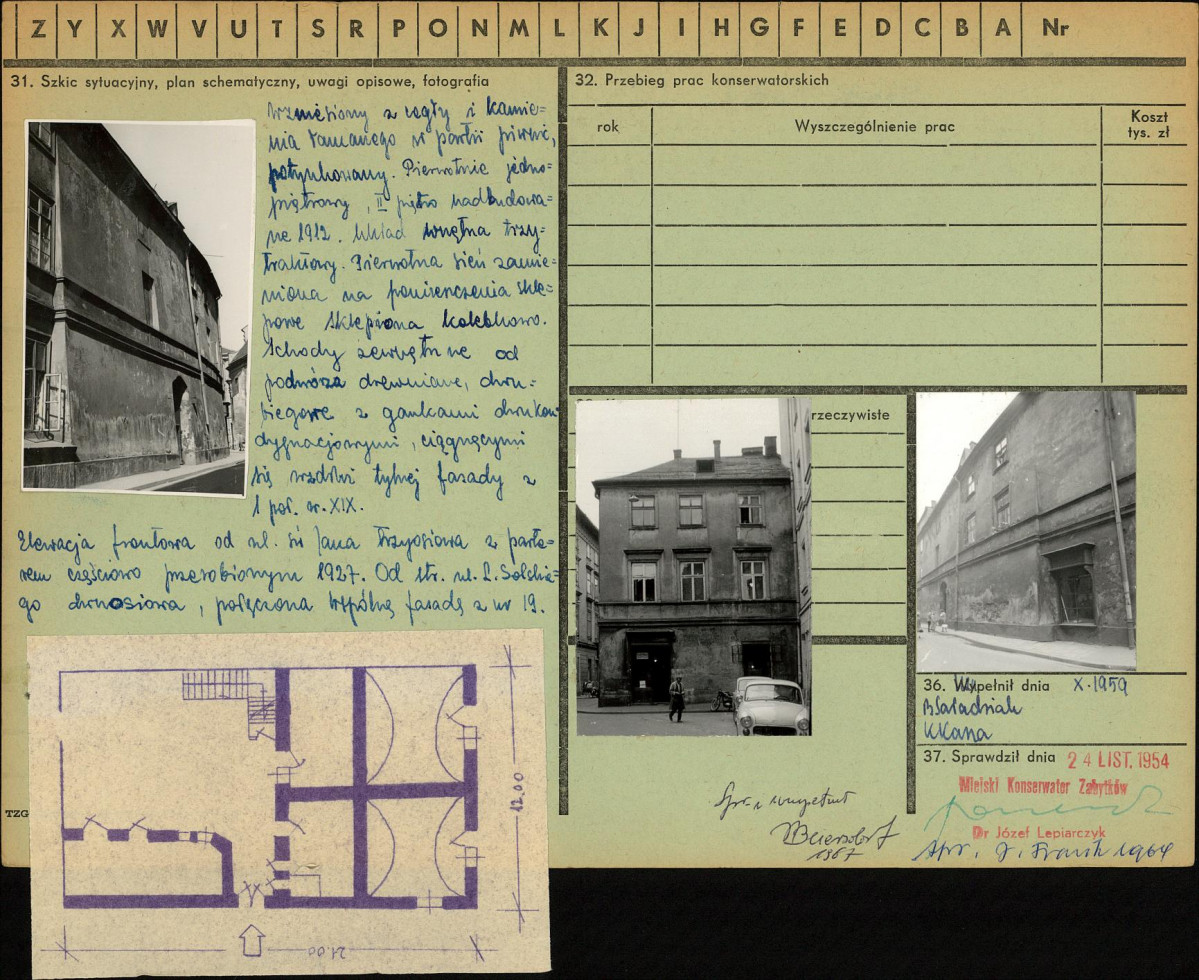 Z Y X W V U T S R P O N M L K J I H G F E D C B A Nr
31. Szkic sytuacyjny, plan schematyczny, uwagi opisowe, fotografia
Wzniesiony z cegły i kamie=
nia łamanego w partii piwnic,
potynkowany. Pierwotnie jedno=
piętrowy, II piętro nadbudowa=
ne 1912. Układ wnętrza trzy=
traktowy. Pierwotna sień zamie=
niona na pomieszczenia skle=
powe sklepiona kolebkowo.
Schody zewnętrzne od
podwórza drewniane, dwu=
biegowe z gankami dwukon
dygnacjowymi, ciągnącymi
się wzdłuż tylnej fasady z
1 poł. w. XIX.
Elewacja frontowa od ul. św Jana trzyosiowa z parte=
rem częściowo przerobionym 1927. Od str. ul. L. Solskie=
go dwuosiowa, połączona wspólną fasadą z nr 19.
12.00
21.00
TZG
32. Przebieg prac konserwatorskich
rok
Wyszczególnienie prac
Koszt
tys. zł
rzeczywiste
36. Wypełnił dnia X.1959
37. Sprawdził dnia 24 LIST. 1954
Miejski Konserwator Zabytków
Dr Józef Lepiarczyk
1964
1967